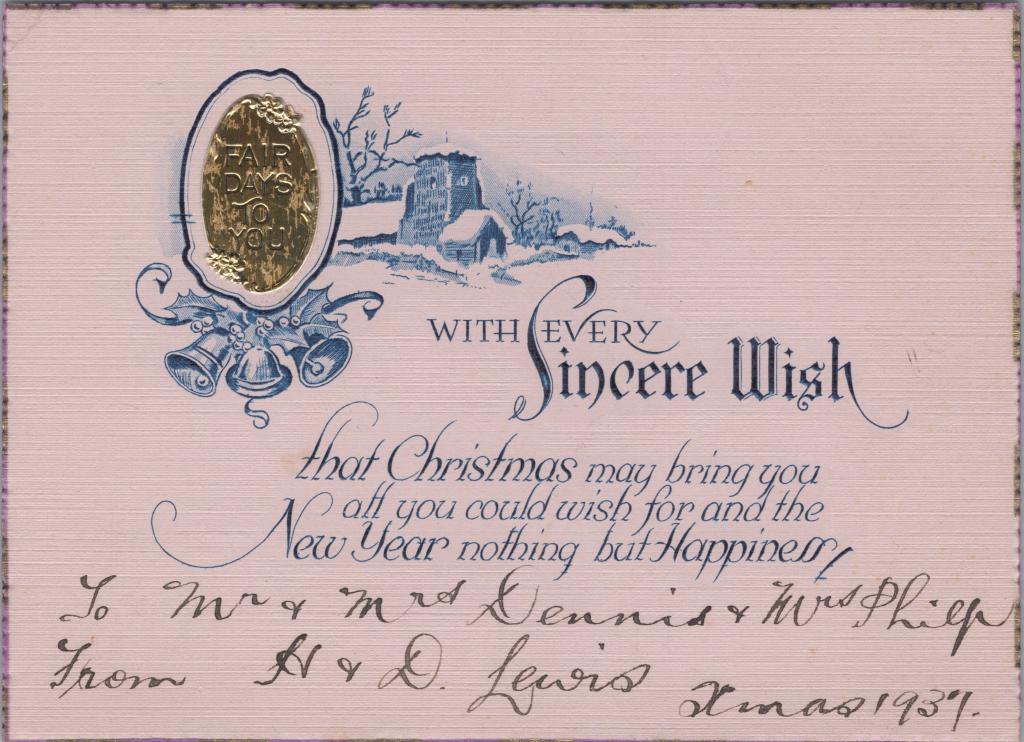 FAIR
DAYS
TO
YOU
WITH EVERY
Sincere Wish
that Christmas may bring you
all you could wish for and the
New Year nothing but Happiness
To Mr & Mrs Dennis & Mrs Philp
From H & D. Lewis
Xmas 1937.